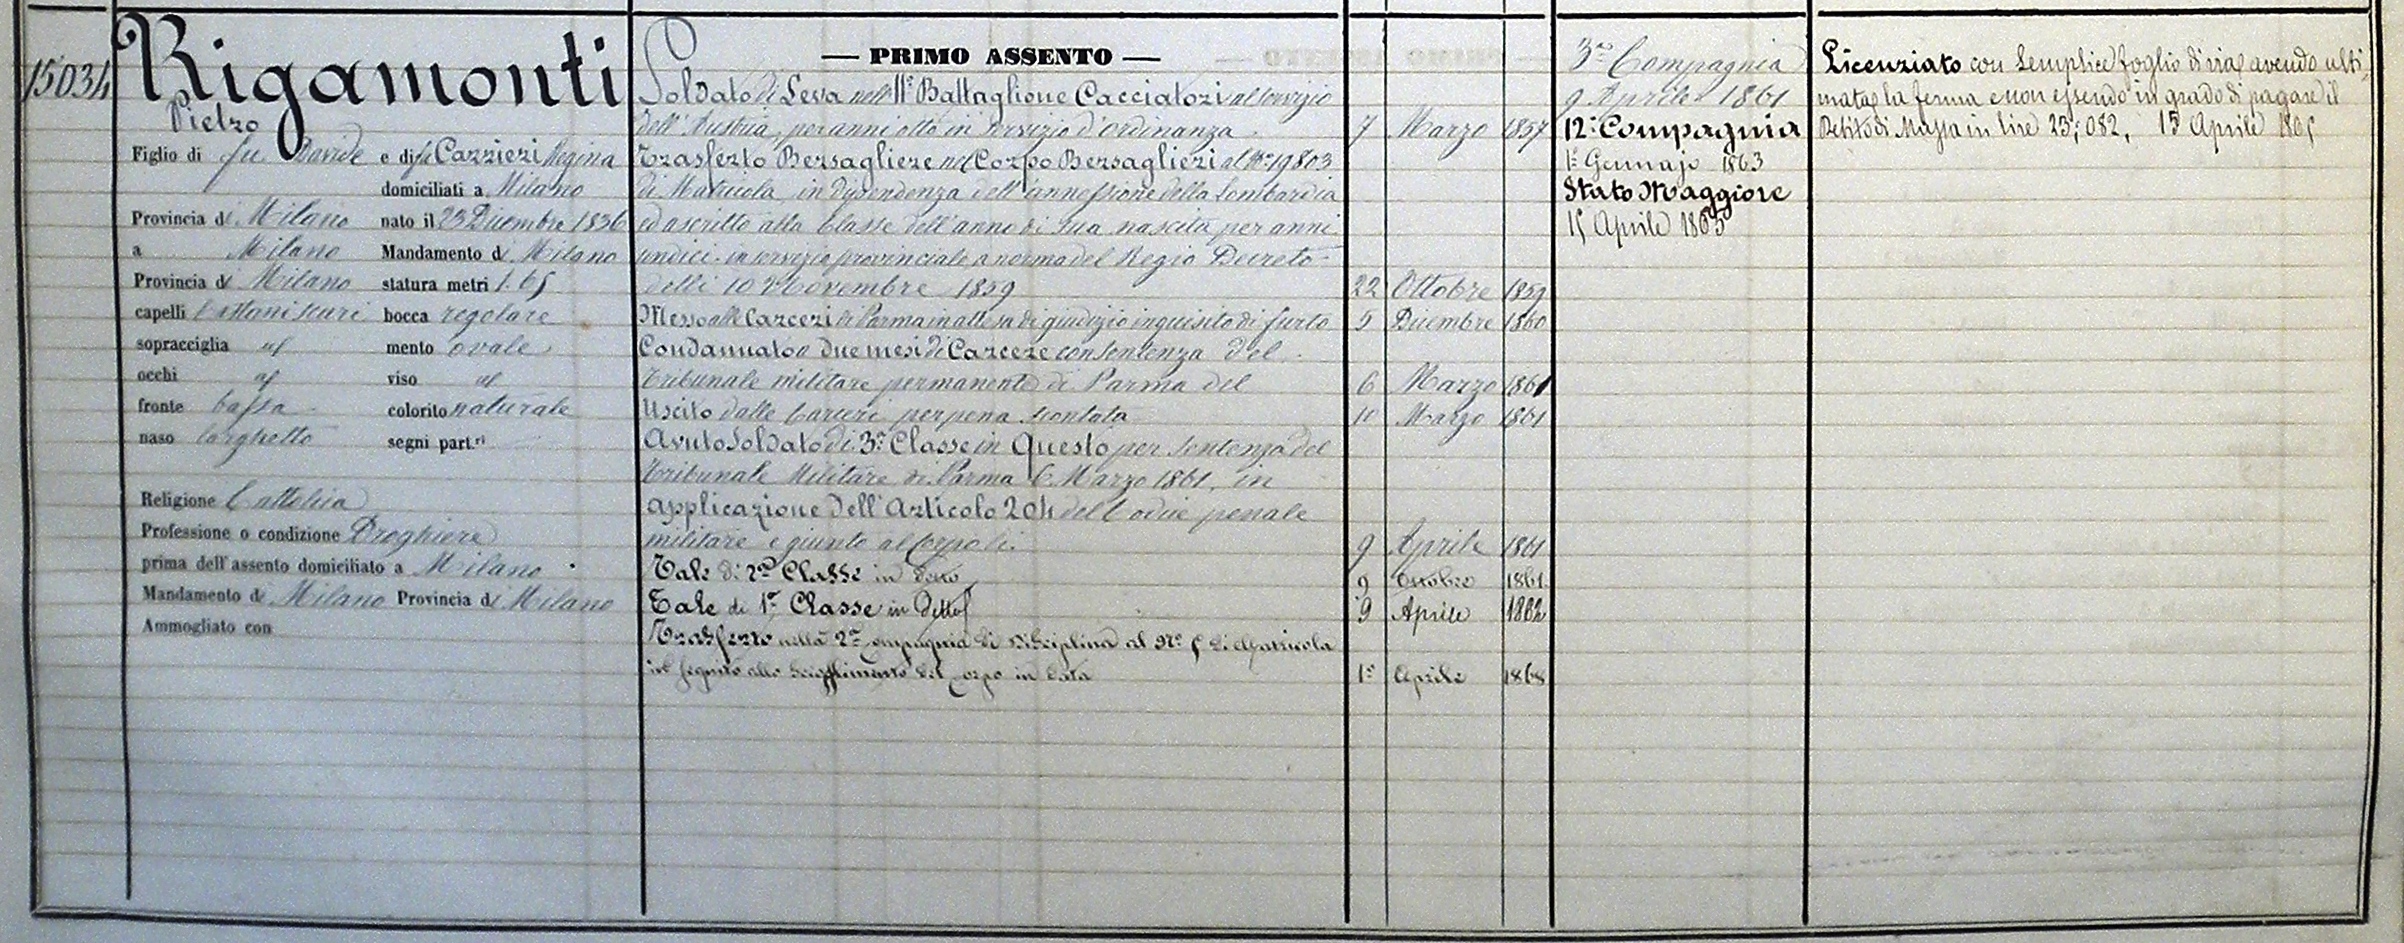 15034
Rigamonti
Pietro
Figlio di fu Davide e di fu Carrieri Regina
domiciliati a Milano
Provincia di Milano nato il 23 Dicembre 1836
a Milano Mandamento di Milano
Provincia di Milano statura metri 1.65
capelli Cattani scuri bocca regolare
sopracciglia id mento ovale
occhi id viso id
fronte bassa colorito naturale
naso larghetto segni part.ri
Religione Cattolica
Professione o condizione Droghiere
prima dell'assento domiciliato a Milano
Mandamento di Milano Provincia di Milano
Ammogliato con
— PRIMO ASSENTO —
Soldato di Leva nell' 11° Battaglione Cacciatori al servizio
dell'Austria, per anni otto in servizio d'ordinanza 7 Marzo 1857
Trasferto Bersagliere nel Corpo Bersaglieri al N° 19803
di Matricola, in dipendenza dell'annessione della Lombardia
ed ascritto alla Classe dell'anno di sua nascita, per anni
undici in servizio provinciale a norma del Regio Decreto
delli 10 Novembre 1859 22 Ottobre 1859
Messo alle Carceri di Parma in attesa di giudizio inquisito di furto 5 Dicembre 1860
Condannato a due mesi di Carcere con sentenza del
Tribunale militare permanente di Parma del 6 Marzo 1861
Uscito dalle Carceri per pena scontata 10 Marzo 1861
Avuto Soldato di 3a Classe in Questo per sentenza del
Tribunale Militare di Parma 6 Marzo 1861, in
applicazione dell'Articolo 204 del Codice penale
militare e giunto al Corpo li 9 Aprile 1861
Tale di 2a Classe in detto 9 Ottobre 1861
Tale di 1a Classe in detto 9 Aprile 1862
Trasferto nella 2a Compagnia di Disciplina al N° 5 di Matricola
in seguito allo scioglimento del Corpo in data 1° Aprile 1868
3a Compagnia
9 Aprile 1861
12a Compagnia
1° Gennajo 1863
Stato Maggiore
15 Aprile 1865
Licenziato con semplice foglio di via avendo ulti-
mata la ferma e non essendo in grado di pagare il
Debito di Massa in lire 23,082, 15 Aprile